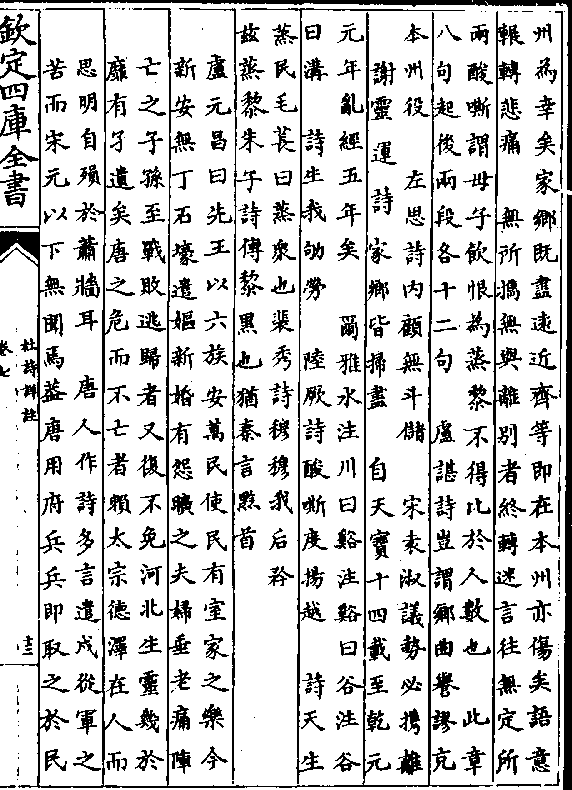 州為幸矣家鄉既盡遠近齊等即在本州亦傷矣語意
輾轉悲痛　無所攜無與離別者終轉迷言往無定所
兩酸嘶謂母子飲恨為蒸黎不得比於人數也　此章
八句起後兩段各十二句　盧諶詩豈謂鄉曲譽謬充
本州役　左思詩内顧無斗儲　宋袁淑議勢必攜離
謝靈運詩家鄉皆掃盡　自天寶十四載至乾元
元年亂經五年矣　爾雅水注川曰谿注谿曰谷注谷
曰溝　詩生我劬勞　陸厥詩酸嘶度揚越　詩天生
蒸民毛萇曰蒸衆也裴秀詩穆穆我后矜
兹蒸黎朱子詩傳黎黑也猶秦言黔首
盧元昌曰先王以六族安萬民使民有室家之樂今
新安無丁石壕遣嫗新婚有怨曠之夫婦垂老痛陣
亡之子孫至戰敗逃歸者又復不免河北生靈幾於
靡有孑遺矣唐之危而不亡者賴太宗德澤在人而
思明自殞於蕭牆耳　唐人作詩多言遣戍從軍之
苦而宋元以下無聞焉葢唐用府兵兵即取之於民
欽定四庫全書
杜詩詳註
卷七
十三